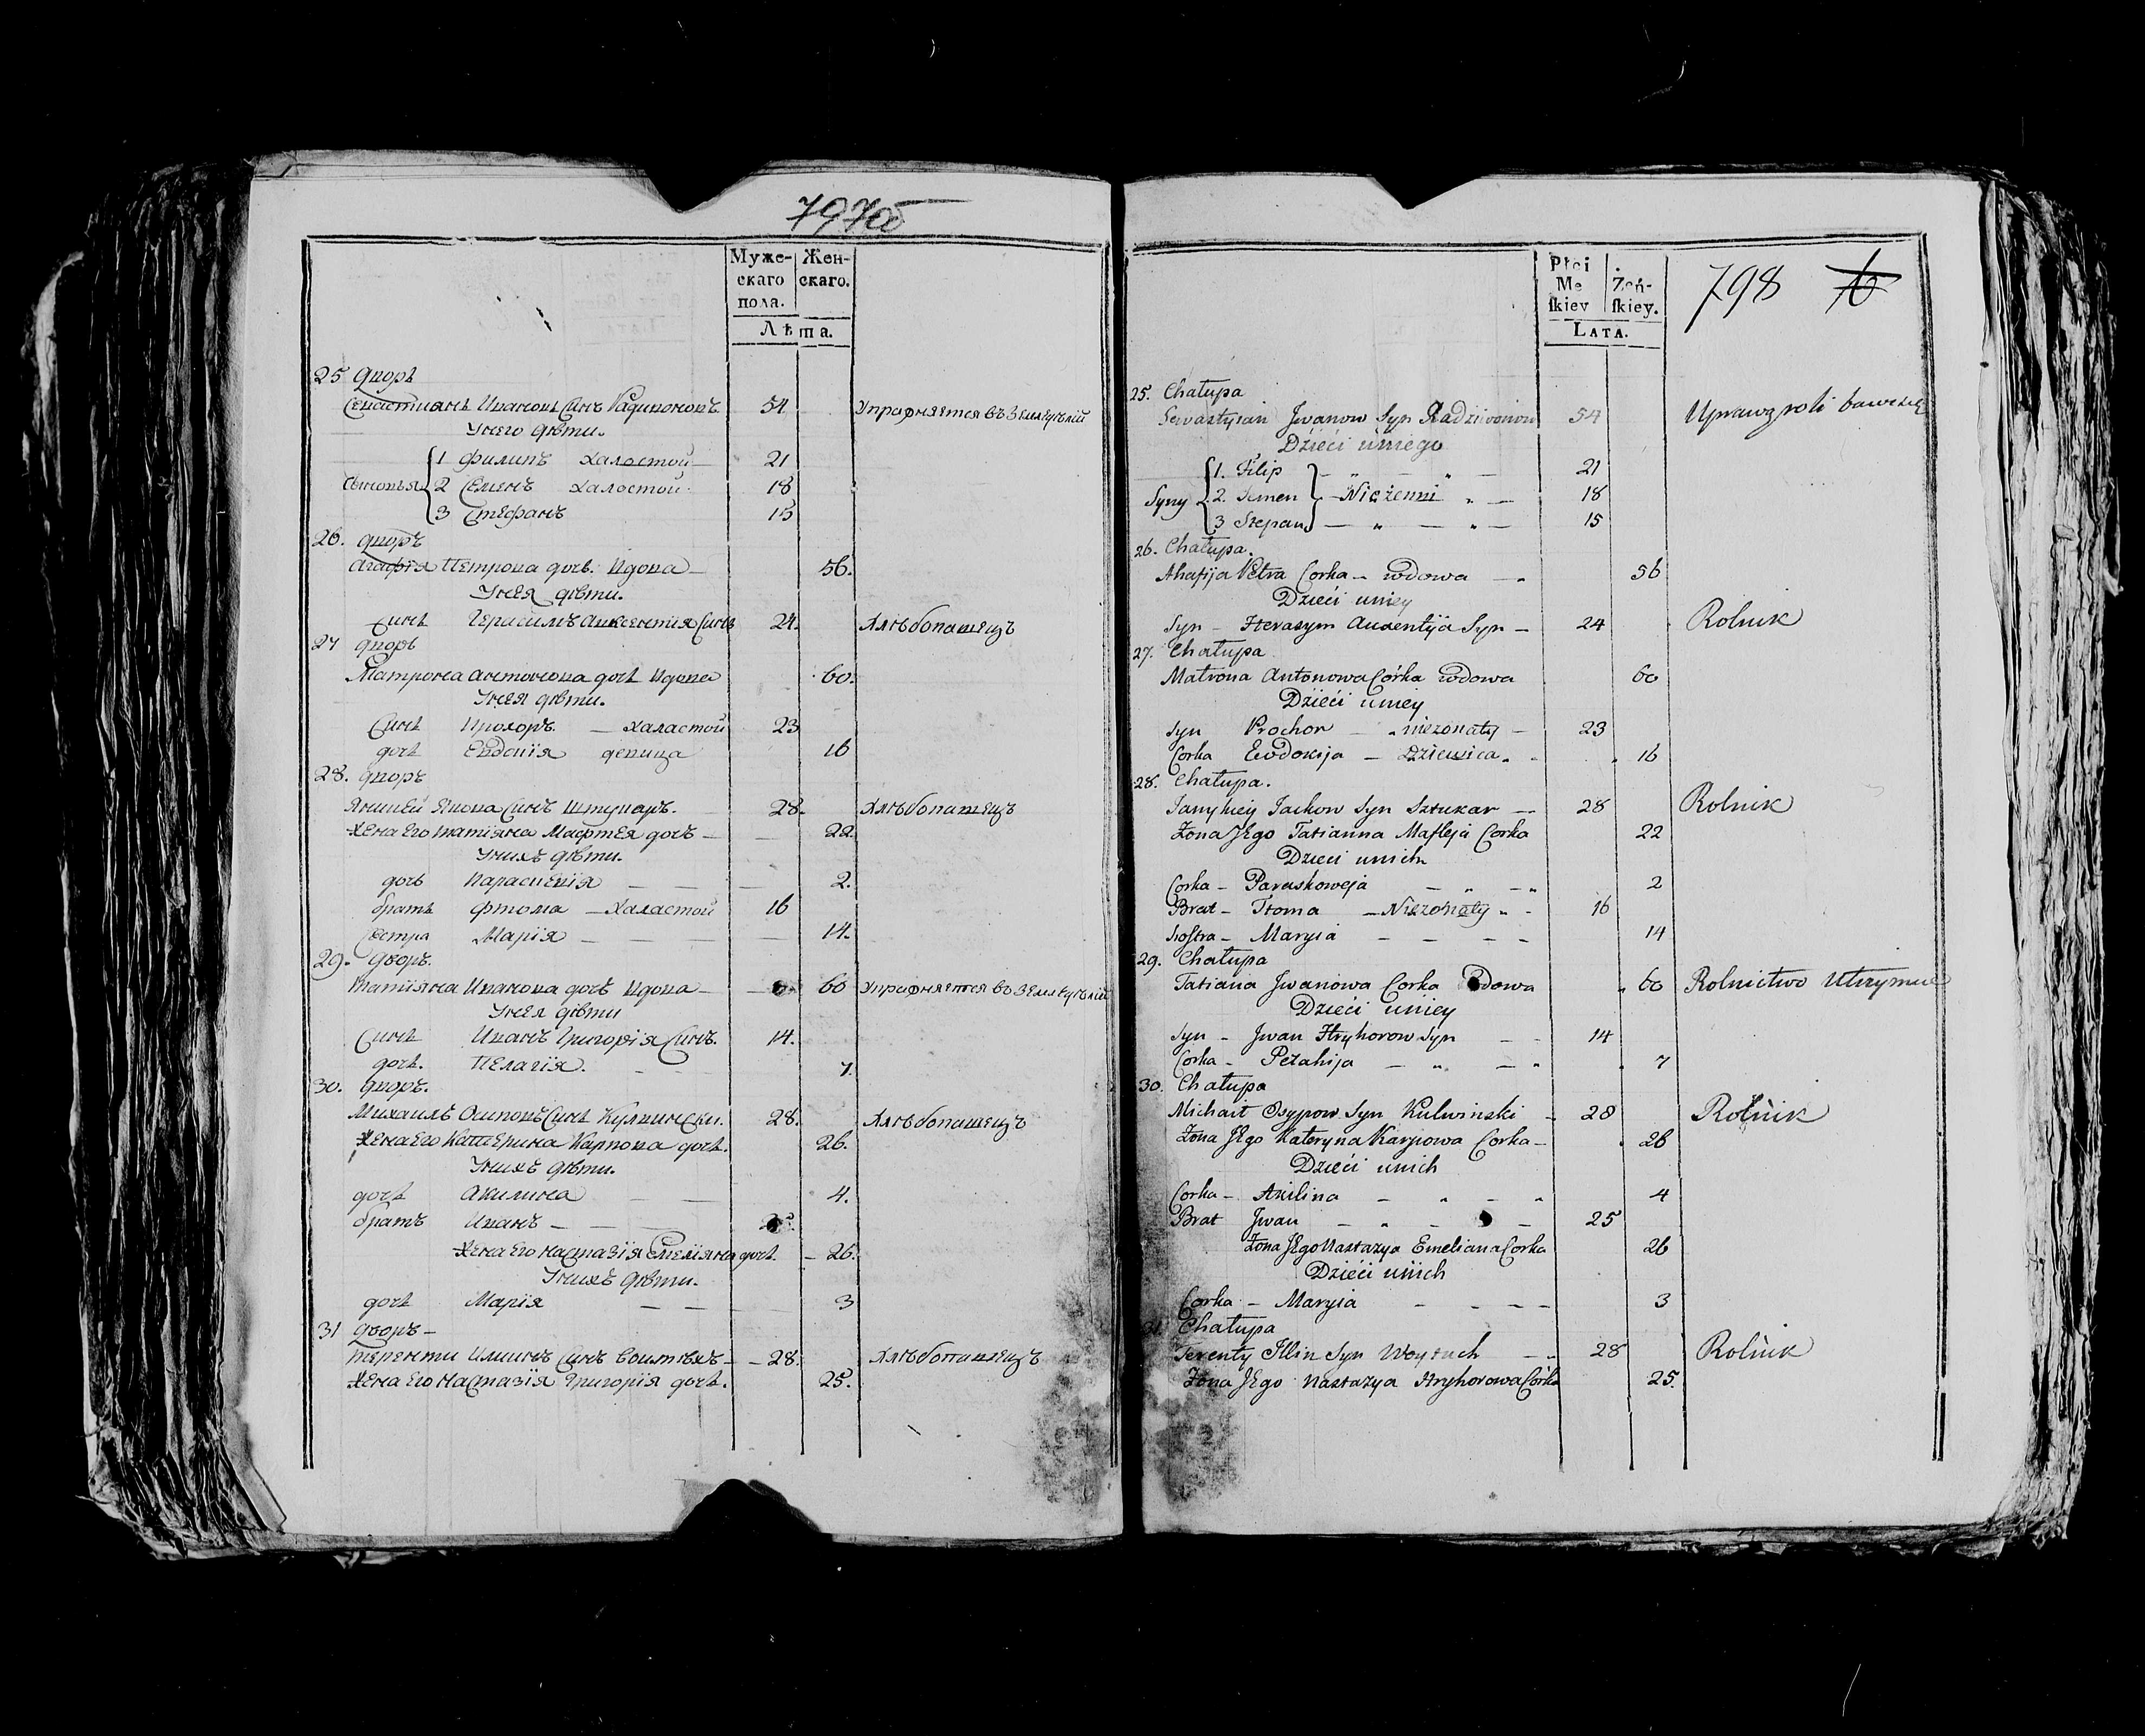 797об
Муже- Жен-
скаго скаго.
пола.
Лѣта.
25 дворъ
Севастиянъ Ивановъ Синъ Радивоновъ 54 Упражняется въ Земледѣлій
Унего дѣти.
1 Филипъ халостой 21
Сыновья 2 Семенъ халостой 18
3 Стефанъ 15
26. дворъ
Агафiя Петрова дочь. вдова 56.
Унея дѣти.
Синъ Герасимъ Авксентiя Синъ 24. Хлѣбопашецъ
27 дворъ
Матрона Антонова дочь вдова 60.
Унея дѣти.
Синъ Прохоръ. халастой 23
дочь Евдокiя девица 16
28. дворъ
Яникей Якова Синъ Штукаръ. 28. Хлѣбопашецъ
Жена Его татiяна Мафтея дочъ 22.
Унихъ дѣти.
дочь Параскевiя 2.
братъ Фтома халастой 16
Сестра Марiя 14.
29. дворъ.
татiяна Иванова дочъ вдова 60 Упражняется въ Земледѣлій
Унея дѣти
Синъ Иванъ Григорiя Синъ. 14.
дочь. Пелагiя. 7.
30. дворъ.
Михаилъ Осиповъ Синъ Кулвински. 28. Хлѣбопашецъ
Жена Его Катерина Карпова дочь. 26.
Унихъ дѣти.
дочь Акилина 4.
братъ Иванъ 25.
Жена Его Настазiя Емелiяна дочь. 26.
Унихъ дѣти.
дочь Марiя 3
31 дворъ
Теренти Илiинъ Синъ Воитѣхъ 28. Хлѣбопашецъ
Жена Его Настазiя Григорiя дочь. 25.
Płci
Me Zeń-
ſkiey ſkiey.
LATA.
798
25. Chałupa
Sewastyian Jwanow Syn Radziwonow 54 Uprawą roli bawi się
Dzieći uniego
1. Filip 21
Syny 2. Semen Nieżenni 18
3 Stepan 15
26. Chałupa.
Ahafija Petra Corka wdowa 56
Dzieći uniey
Syn Herasym Auxentija Syn 24 Rolnik
27. Chałupa
Matrona Antonowa Córka wdowa 60
Dzieći uniey
Syn Prochor niezonaty 23
Corka Ewdokija Dziewica 16
28. Chałupa.
Janykiey Jackow Syn Sztukar 28 Rolnik
Żona JEgo Tatianna Mafteja Corka 22
Dzieci unich
Corka Paraskoweja 2
Brat Ftoma Niezonaty 16
Sioſtra Marysia 14
29. Chałupa
Tatiana Jwanowa Corka Wdowa 60 Rolnictwo Utrzymuie
Dzieći uniey
Syn Jwan Hryhorow Syn 14
Corka Pełahija 7
30. Chałupa
Michaił Osypow Syn Kulwinski 28 Rolnik
Żona JEgo Kateryna Karpowa Corka 26
Dzieći unich
Corka Akilina 4
Brat Jwan 25
Żona JEgo Nastazya Emeliana Corka 26
Dzieći unich
Corka Marysia 3
31. Chałupa
Terenty Jllin Syn Woytuch 28 Rolnik
Żona JEgo Nastazya Hryhorowa Córka 25.